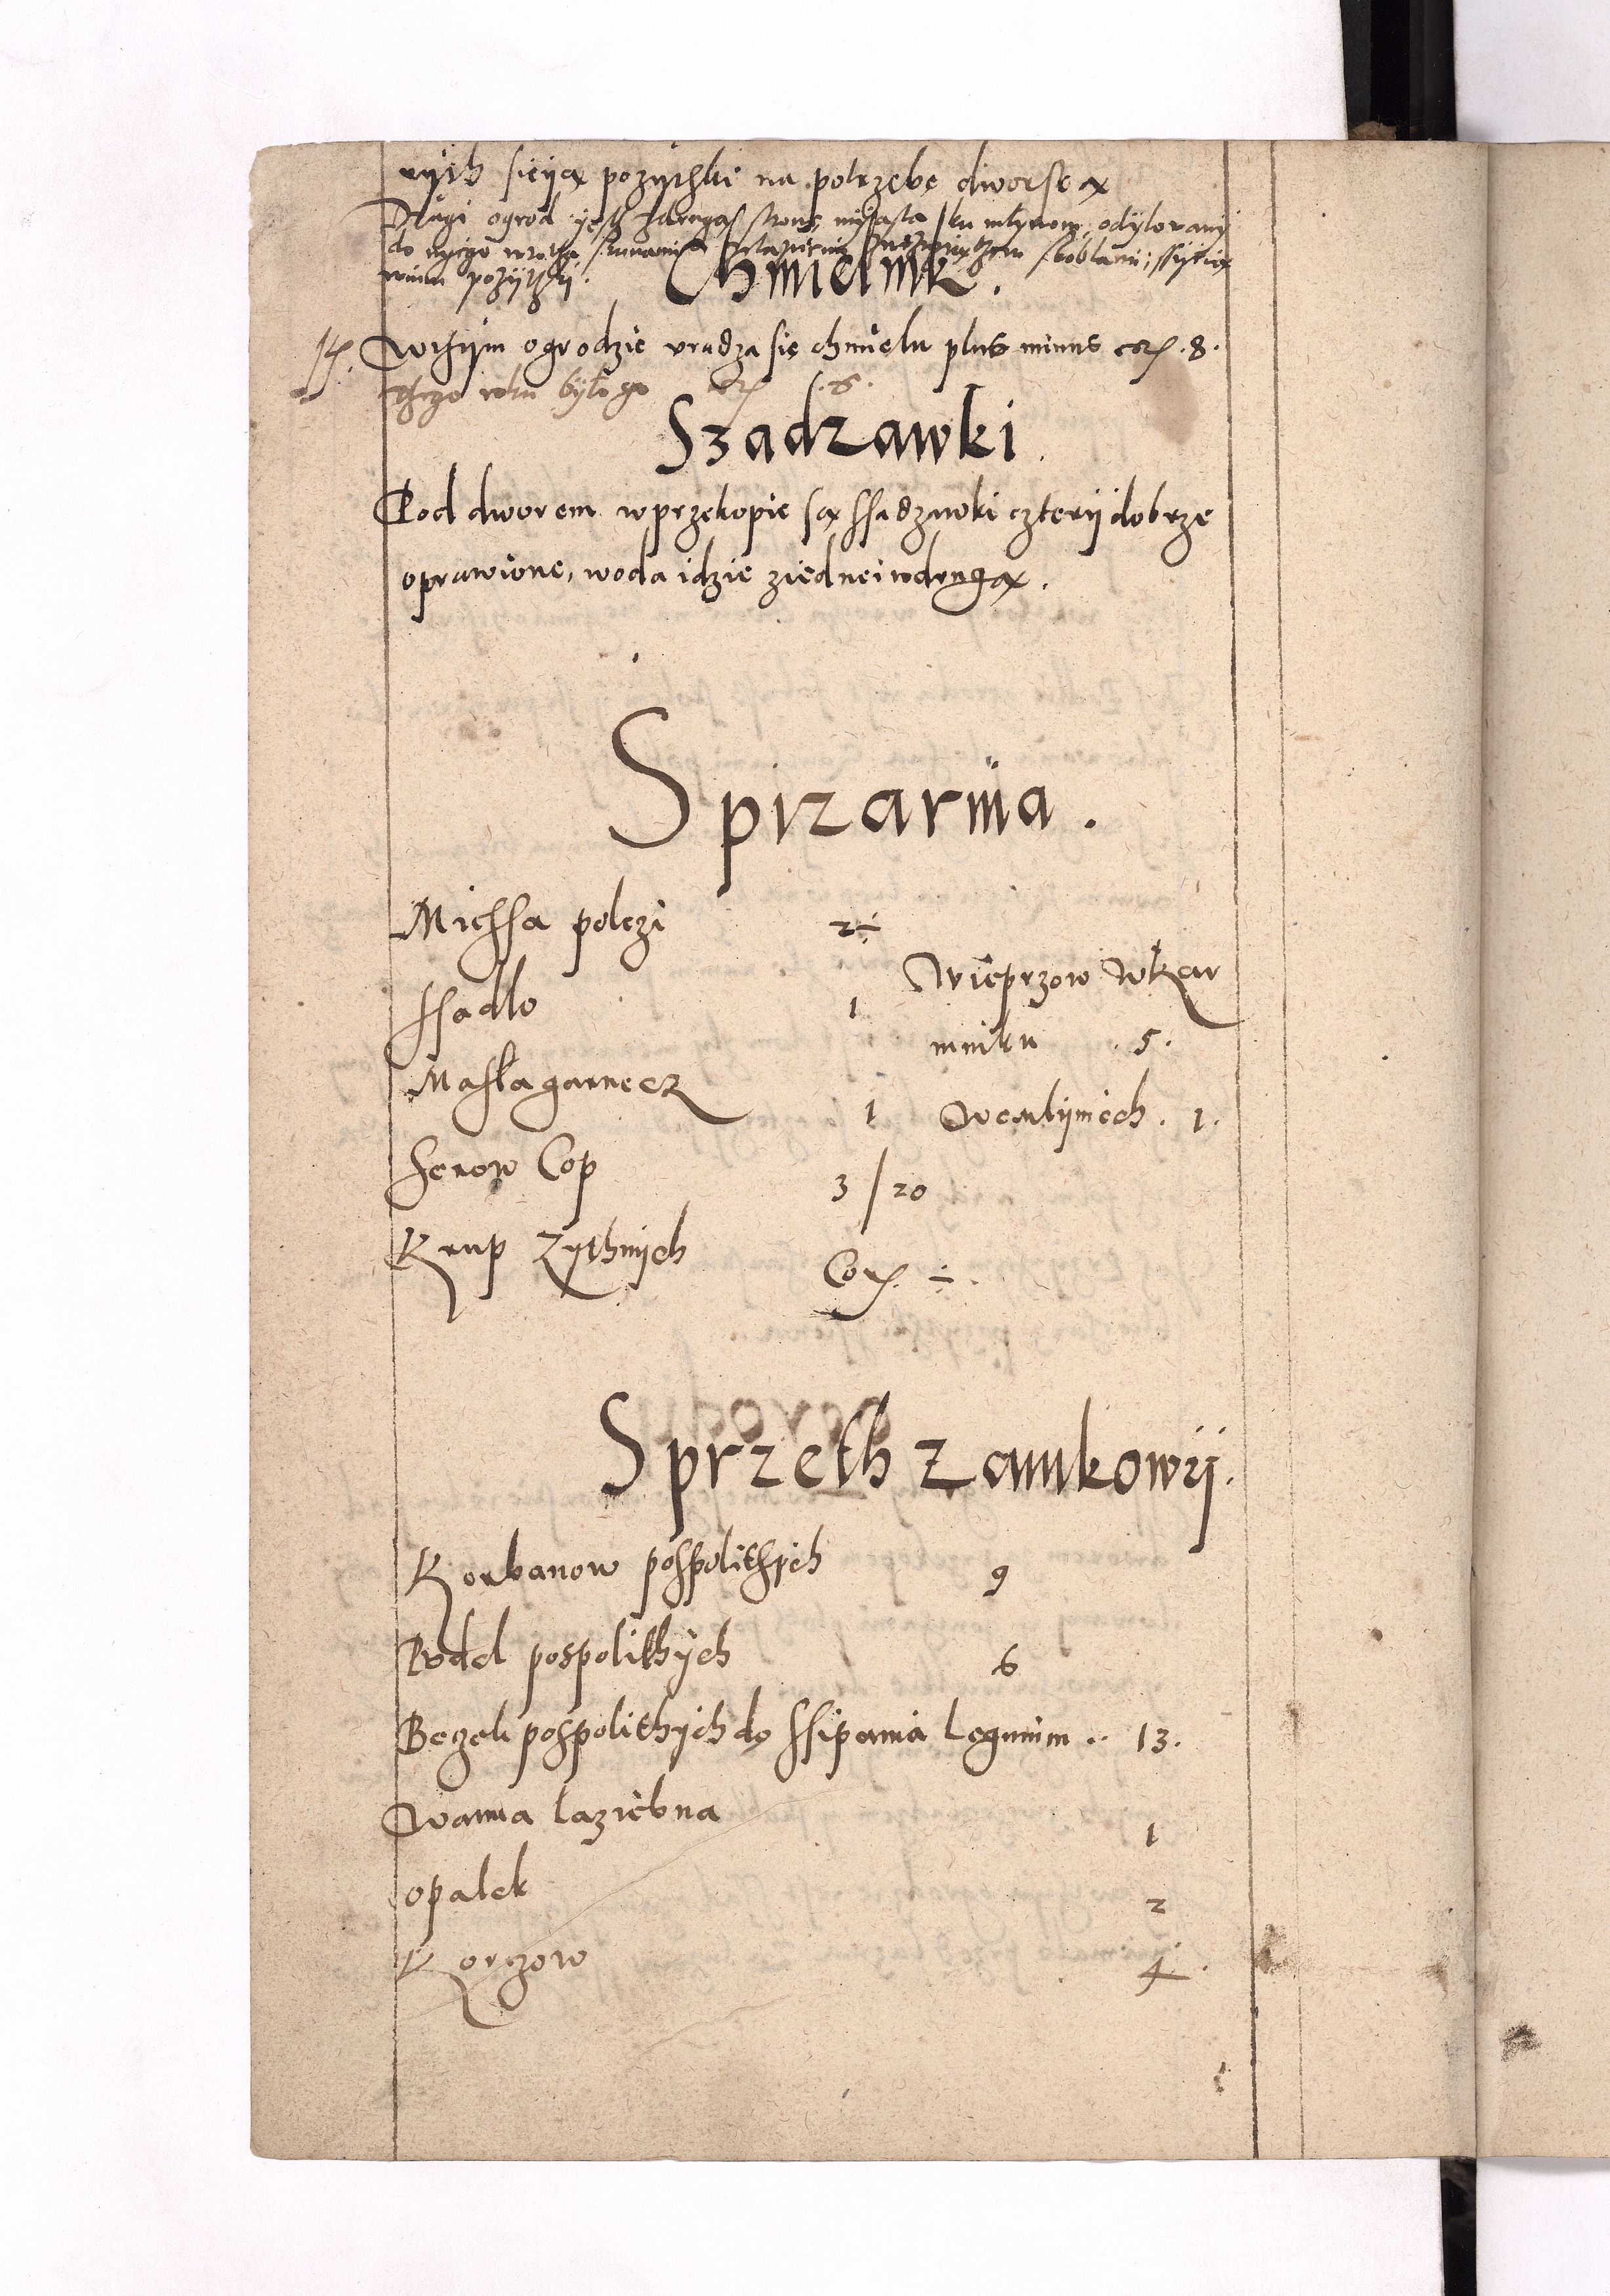 rych sieyą pozythki na potrzebę dworską
Drugi ogrod yesth zdrugą stronę myasta ku młynom, odylovany
do nyego wrotha skobłami, ssyeią
winu pozythy.
Chmielnik.
Wthym ogrodzie vradza się chmielu plus minus cor. 8.
thego roku było go cor. 6.
Szadzawki.
Pod dworem wprzekopie są ssadzawki cztery dobrze
oprawione, woda idzie ziednei wdrugą.
Spizarnia.
Miessa polczi 2 ÷
ssadlo 1
Wieprzow Wkar
mniku . 5.
Masła garnecz 1
Wcoulyniech . 1.
serow Cop 3 / 20
Krup Zythnych Cor. ÷.
Sprzeth Zamkowy.
Korbanow pospolithych 9
Rodel pospolithych 6
Beczek pospolithych do ssipania Legumin .. 13.
Wanna laziebna 1
opalek 2
Korczow 4.